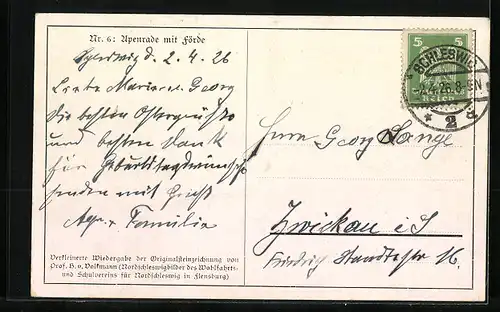 Nr. 6: Apenrade mit Förde
Schleswig d. 2.4.26
Liebe Marie u. Georg
die besten Ostergrüße
und besten Dank
für Geburtstagswünsche
senden mit
Familie
Verkleinerte Wiedergabe der Originalsteinzeichnung von
Prof. H. v. Volkmann (Nordschleswigbilder des Wohlfahrts-
und Schulvereins für Nordschleswig in Flensburg)
5 5
SCHLESWIG
2.4.26.8-9N
* 2 d
Herrn Georg Lange
Zwickau i. S
Friedrich 16.